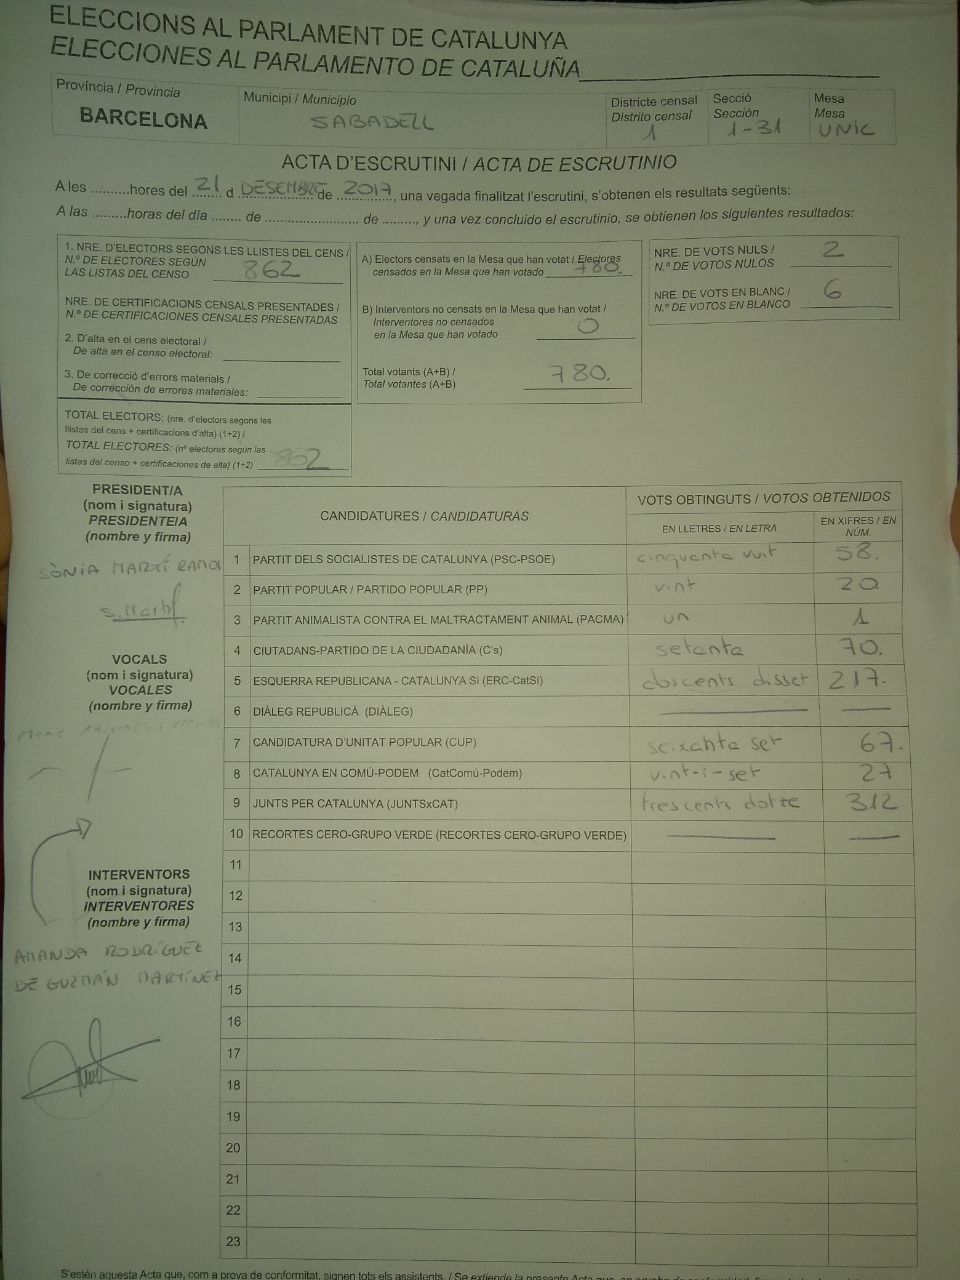 ELECCIONS AL PARLAMENT DE CATALUNYA
ELECCIONES AL PARLAMENTO DE CATALUÑA
Província / Provincia
BARCELONA
Municipi / Municipio
SABADELL
Districte censal
Distrito censal
1
Secció
Sección
1-31
Mesa
Mesa
UNIC
ACTA D'ESCRUTINI / ACTA DE ESCRUTINIO
A les ..........hores del 21 d DESEMBRE de 2017, una vegada finalitzat l'escrutini, s'obtenen els resultats següents:
A las .........horas del día ........ de ......................... de ........., y una vez concluido el escrutinio, se obtienen los siguientes resultados:
1. NRE. D'ELECTORS SEGONS LES LLISTES DEL CENS /
N.º DE ELECTORES SEGÚN
LAS LISTAS DEL CENSO 862
NRE. DE CERTIFICACIONS CENSALS PRESENTADES /
N.º DE CERTIFICACIONES CENSALES PRESENTADAS
2. D'alta en el cens electoral /
De alta en el censo electoral:
3. De correcció d'errors materials /
De corrección de errores materiales:
TOTAL ELECTORS: (nre. d'electors segons les
llistes del cens + certificacions d'alta) (1+2) /
TOTAL ELECTORES: (nº electores según las
listas del censo + certificaciones de alta) (1+2) 862
A) Electors censats en la Mesa que han votat / Electores
censados en la Mesa que han votado 780.
B) Interventors no censats en la Mesa que han votat /
Interventores no censados
en la Mesa que han votado 0
Total votants (A+B) /
Total votantes (A+B) 780.
NRE. DE VOTS NULS /
N.º DE VOTOS NULOS 2
NRE. DE VOTS EN BLANC /
N.º DE VOTOS EN BLANCO 6
PRESIDENT/A
(nom i signatura)
PRESIDENTE/A
(nombre y firma)
SÒNIA MARTÍ
S. Martí
VOCALS
(nom i signatura)
VOCALES
(nombre y firma)
INTERVENTORS
(nom i signatura)
INTERVENTORES
(nombre y firma)
AMANDA RODRÍGUEZ
DE GUZMÁN MARTÍNEZ
CANDIDATURES / CANDIDATURAS
VOTS OBTINGUTS / VOTOS OBTENIDOS
EN LLETRES / EN LETRA
EN XIFRES / EN
NÚM.
1 PARTIT DELS SOCIALISTES DE CATALUNYA (PSC-PSOE) cinquanta vuit 58.
2 PARTIT POPULAR / PARTIDO POPULAR (PP) vint 20
3 PARTIT ANIMALISTA CONTRA EL MALTRACTAMENT ANIMAL (PACMA) un 1
4 CIUTADANS-PARTIDO DE LA CIUDADANÍA (C's) setanta 70.
5 ESQUERRA REPUBLICANA - CATALUNYA SÍ (ERC-CatSí) doscents disset 217.
6 DIÀLEG REPUBLICÀ (DIÀLEG)
7 CANDIDATURA D'UNITAT POPULAR (CUP) seixanta set 67.
8 CATALUNYA EN COMÚ-PODEM (CatComú-Podem) vint-i-set 27
9 JUNTS PER CATALUNYA (JUNTSxCAT) trescents dotze 312
10 RECORTES CERO-GRUPO VERDE (RECORTES CERO-GRUPO VERDE)
11
12
13
14
15
16
17
18
19
20
21
22
23
S'estén aquesta Acta que, com a prova de conformitat, signen tots els assistents. / Se extiende la presente Acta que,